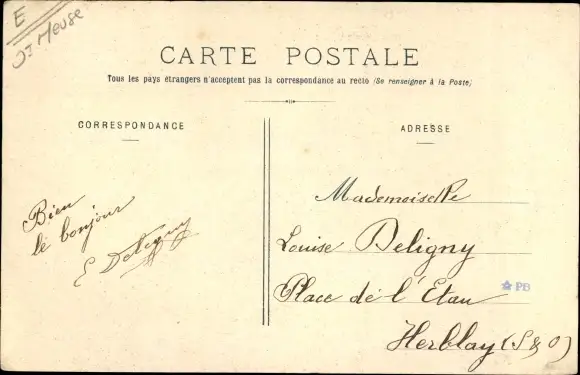 E
Jt Meuse
CARTE POSTALE
Tous les pays étrangers n'acceptent pas la correspondance au recto (Se renseigner à la Poste)
CORRESPONDANCE
Bien
le bonjour
E Deligny
ADRESSE
Mademoiselle
Louise Deligny
Place de l'Etau
Herblay (S & O)
PB